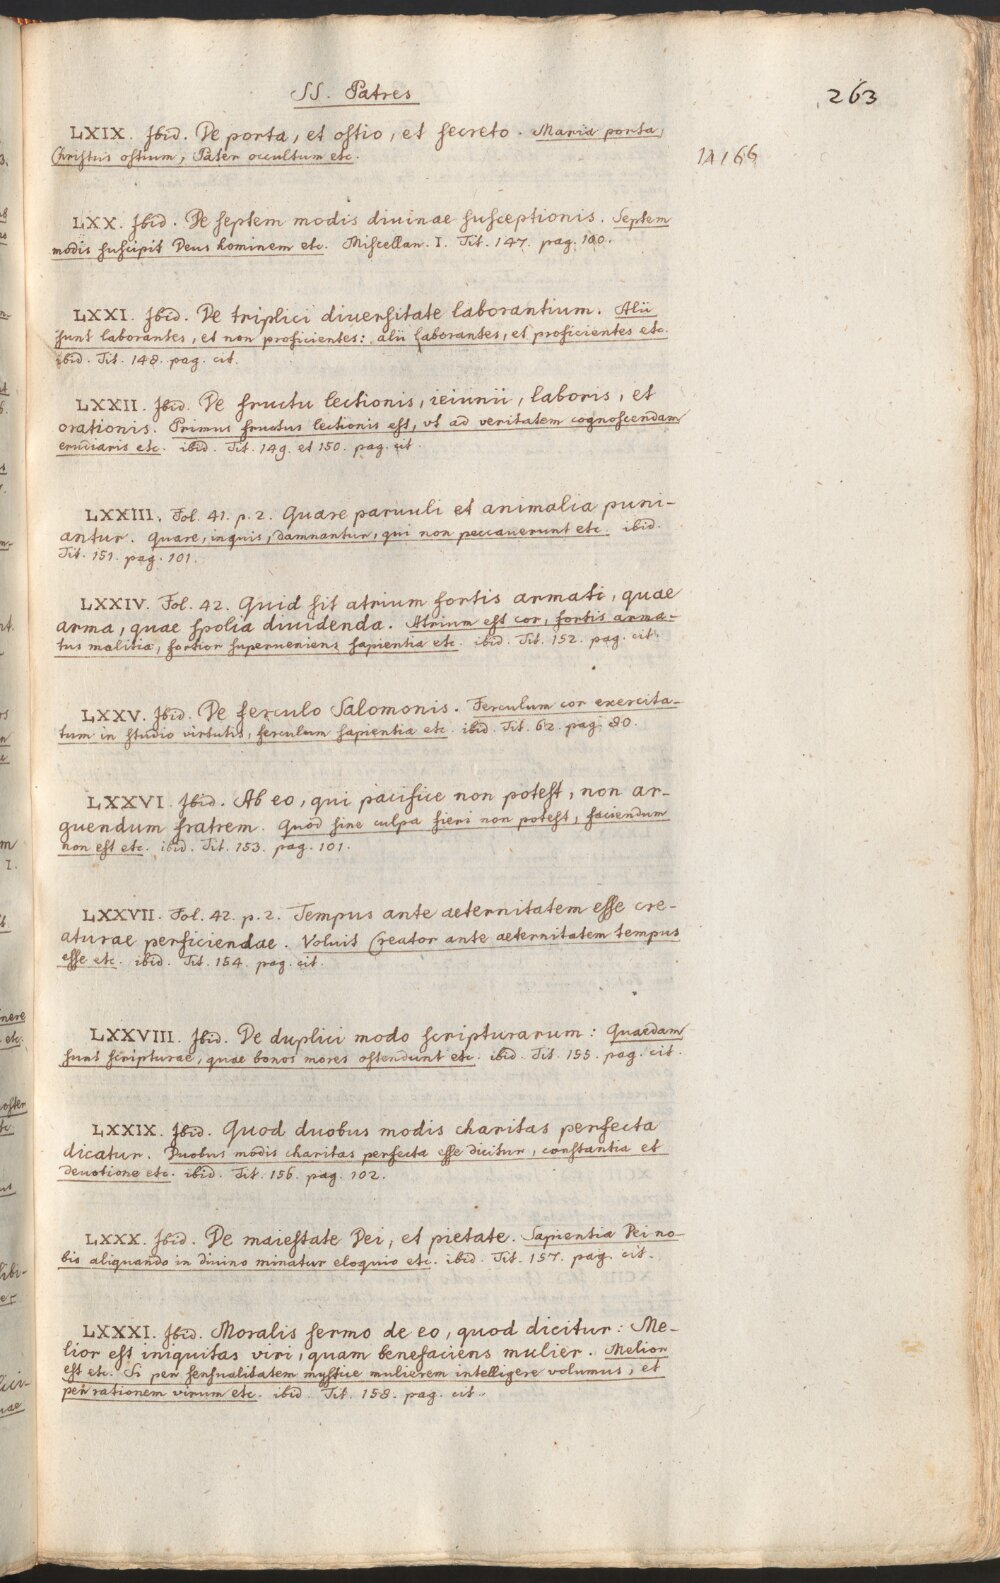 SS. Patres
263
LXIX. Ibid. De porta, et ostio, et secreto. Maria porta,
Christus ostium, Pater occultum etc.
14166
LXX. Ibid. De septem modis diuinae susceptionis. Septem
modis suscipit Deus hominem etc. Miscellan. I. Tit. 147. pag. 100.
LXXI. Ibid. De triplici diuersitate laborantium. Alii
sunt laborantes, et non proficientes: alii laborantes, et proficientes etc.
ibid. Tit. 148. pag. cit.
LXXII. Ibid. De fructu lectionis, ieiunii, laboris, et
orationis. Primus fructus lectionis est, vt ad veritatem cognoscendam
erudiaris etc. ibid. Tit. 149. et 150. pag. cit.
LXXIII. Fol. 41. p. 2. Quare paruuli et animalia puni-
antur. Quare, inquis, damnantur, qui non peccauerunt etc. ibid.
Tit. 151. pag. 101.
LXXIV. Fol. 42. Quid sit atrium fortis armati, quae
arma, quae spolia diuidenda. Atrium est cor, fortis arma-
tus malitia, fortior superueniens sapientia etc. ibid. Tit. 152. pag. cit.
LXXV. Ibid. De ferculo Salomonis. Ferculum cor exercita-
tum in studio virtutis, ferculum sapientia etc. ibid. Tit. 62. pag. 80.
LXXVI. Ibid. Ab eo, qui pacifice non potest, non ar-
guendum fratrem. Quod sine culpa fieri non potest, faciendum
non est etc. ibid. Tit. 153. pag. 101.
LXXVII. Fol. 42. p. 2. Tempus ante aeternitatem esse cre-
aturae perficiendae. Voluit Creator ante aeternitatem tempus
esse etc. ibid. Tit. 154. pag. cit.
LXXVIII. Ibid. De duplici modo scripturarum: Quaedam
sunt scripturae, quae bonos mores ostendunt etc. ibid. Tit. 155. pag. cit.
LXXIX. Ibid. Quod duobus modis charitas perfecta
dicatur. Duobus modis charitas perfecta esse dicitur, constantia et
deuotione etc. ibid. Tit. 156. pag. 102.
LXXX. Ibid. De maiestate Dei, et pietate. Sapientia Dei no-
bis aliquando in diuino minatur eloquio etc. ibid. Tit. 157. pag. cit.
LXXXI. Ibid. Moralis sermo de eo, quod dicitur: Me-
lior est iniquitas viri, quam benefaciens mulier. Melior
est etc. Si per sensualitatem mystice mulierem intelligere volumus, et
per rationem virum etc. ibid. Tit. 158. pag. cit.